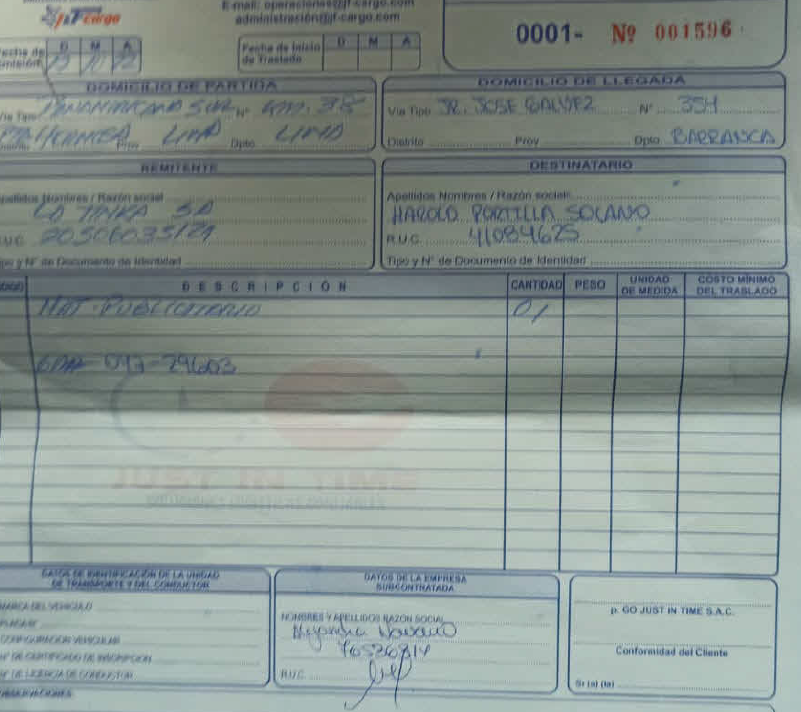 E-mail: operaciones@jt-cargo.com
administración@jt-cargo.com
JT Cargo
0001- Nº 001596
Fecha de Emisión D M A
Fecha de Inicio de Traslado D M A
DOMICILIO DE PARTIDA
Vía Tipo PANAMERICANA SUR Nº KM. 38
Prov. LIMA Dpto. LIMA
DOMICILIO DE LLEGADA
Vía Tipo JR. JOSE GALVEZ Nº 354
Distrito Prov Dpto BARRANCA
REMITENTE
Apellidos Nombres / Razón social
LA TINKA SA
R.U.C.
Tipo y Nº de Documento de Identidad
DESTINATARIO
Apellidos Nombres / Razón social:
HAROLD PORTILLA SOLANO
R.U.C. 41084625
Tipo y Nº de Documento de Identidad
DESCRIPCIÓN CANTIDAD PESO UNIDAD DE MEDIDA COSTO MÍNIMO DEL TRASLADO
MAT. PUBLICITARIO 01
097-29603
JUST IN TIME
DATOS DE IDENTIFICACIÓN DE LA UNIDAD
DE TRANSPORTE Y DEL CONDUCTOR
MARCA DEL VEHICULO
PLACA Nº
CONFIGURACION VEHICULAR
Nº DE CERTIFICADO DE INSCRIPCION
Nº DE LICENCIA DE CONDUCTOR
DATOS DE LA EMPRESA
SUBCONTRATADA
NOMBRES Y APELLIDOS RAZON SOCIAL
Alejandra
R.U.C.
p. GO JUST IN TIME S.A.C.
Conformidad del Cliente
Sr (a) (ta)
OBSERVACIONES